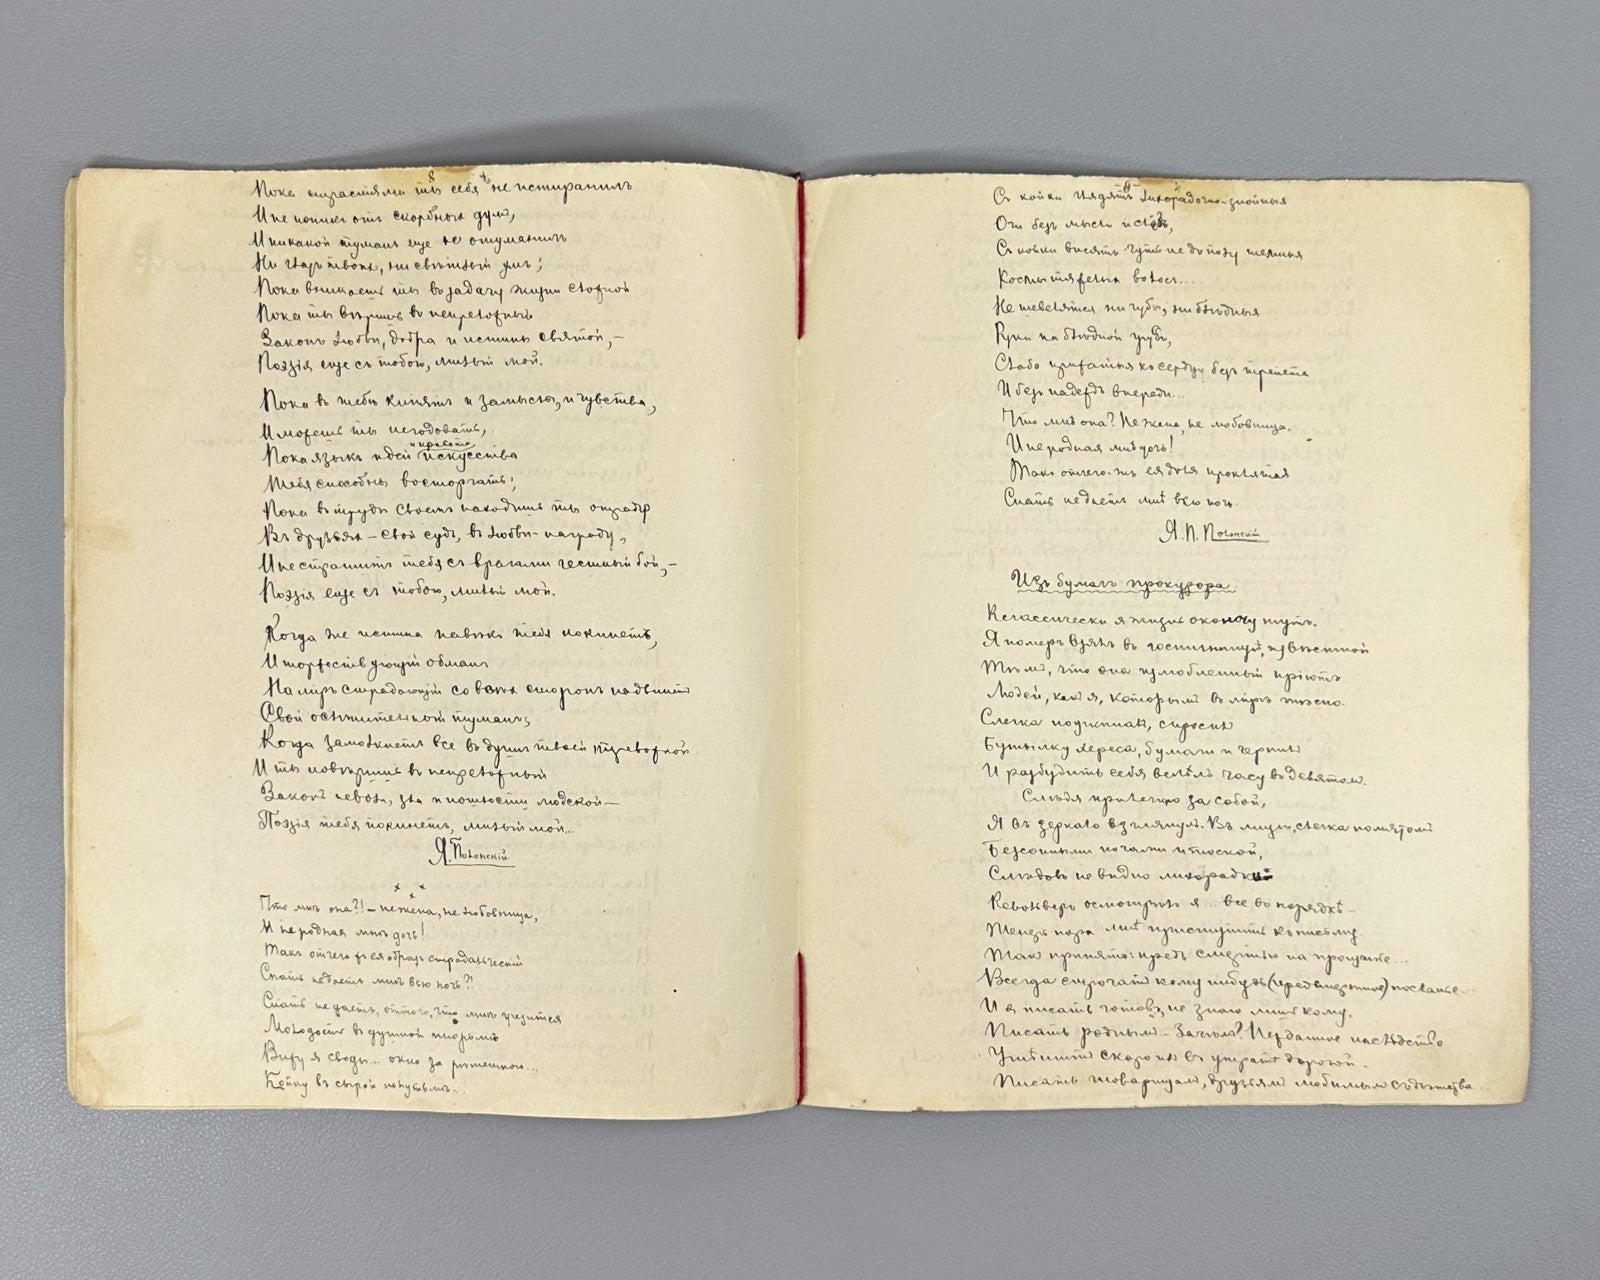 8
Пока страстями ты себя не истиранилъ
И не поникъ отъ скорбныхъ думъ,
И никакой туманъ еще не отуманилъ
Ни чаръ твоихъ, ни свѣтлый умъ;
Пока вникаешь ты въ задачу жизни сложной
Пока ты вѣришь въ непреложный
Законъ любви, добра и истины святой, –
Поэзія еще съ тобою, милый мой.
Пока въ тебѣ кипятъ и замыслы, и чувства,
И можешь ты негодовать,
и красота
Пока языкъ идей искусства
Тебя способны восторгать;
Пока въ трудѣ своемъ находишь ты отраду
Въ друзьяхъ – свой судъ, въ любви – награду,
И не страшитъ тебя съ врагами честный бой, –
Поэзія еще съ тобою, милый мой.
Когда же истина навѣкъ тебя покинетъ,
И торжествующій обманъ
На міръ страдающій со всѣхъ сторонъ надвинетъ
Свой ослѣпительный туманъ;
Когда замолкнетъ все въ душѣ твоей тревожной
И ты повѣришь въ непреложный
Законъ невзгодъ, зла и пошлости людской –
Поэзія тебя покинетъ, милый мой...
Я. Полонскій
Что мнѣ она?! – не жена, не любовница,
И не родная мнѣ дочь!
Такъ отчего жъ ея образъ страдальческій
Спать не даетъ мнѣ всю ночь?!
Спать не даетъ, оттого, что мнѣ грезится
Молодость въ душной тюрьмѣ
Вижу я своды... окно за рѣшеткою...
Койку въ сырой полутьмѣ...
Съ койки глядятъ лихорадочно-знойныя
Очи безъ мысли и слезъ,
Съ койки висятъ чуть не до полу темныя
Космы тяжелыя волосъ...
Не шевелятся ни губы, ни блѣдныя
Руки на блѣдной груди,
Слабо прижатыя къ сердцу безъ трепета
И безъ надеждъ впереди...
Что мнѣ она? Не жена, не любовница,
И не родная мнѣ дочь!
Такъ отчего-жъ ея доля проклятая
Спать не даетъ мнѣ всю ночь.
Я. П. Полонскій
Изъ бумагъ прокурора
Классически я жизнь окончу тутъ.
Я номеръ взялъ въ гостинницѣ, извѣстной
Тѣмъ, что она излюбленный пріютъ
Людей, какъ я, которымъ въ мірѣ тѣсно.
Слегка поужиналъ, спросилъ
Бутылку хереса, бумаги и чернилъ
И разбудить себя велѣлъ часу въ девятомъ.
Слѣдя прилежно за собой,
Я въ зеркало взглянулъ. Въ лицѣ, слегка помятомъ
Безсонными ночами и тоской,
Слѣдовъ не видно лихорадки
Револьверъ осмотрѣлъ я... все въ порядкѣ –
Теперь пора мнѣ приступить къ письму.
Такъ принято: предъ смертью на прощанье...
Всегда строчатъ кому нибудь (предсмертное) посланье...
И я писать готовъ, не знаю лишь кому.
Писать роднымъ... Зачѣмъ? Нежданное наслѣдство
Утѣшитъ скоро ихъ въ утратѣ дорогой.
Писать товарищамъ, друзьямъ любимымъ съ дѣтства...